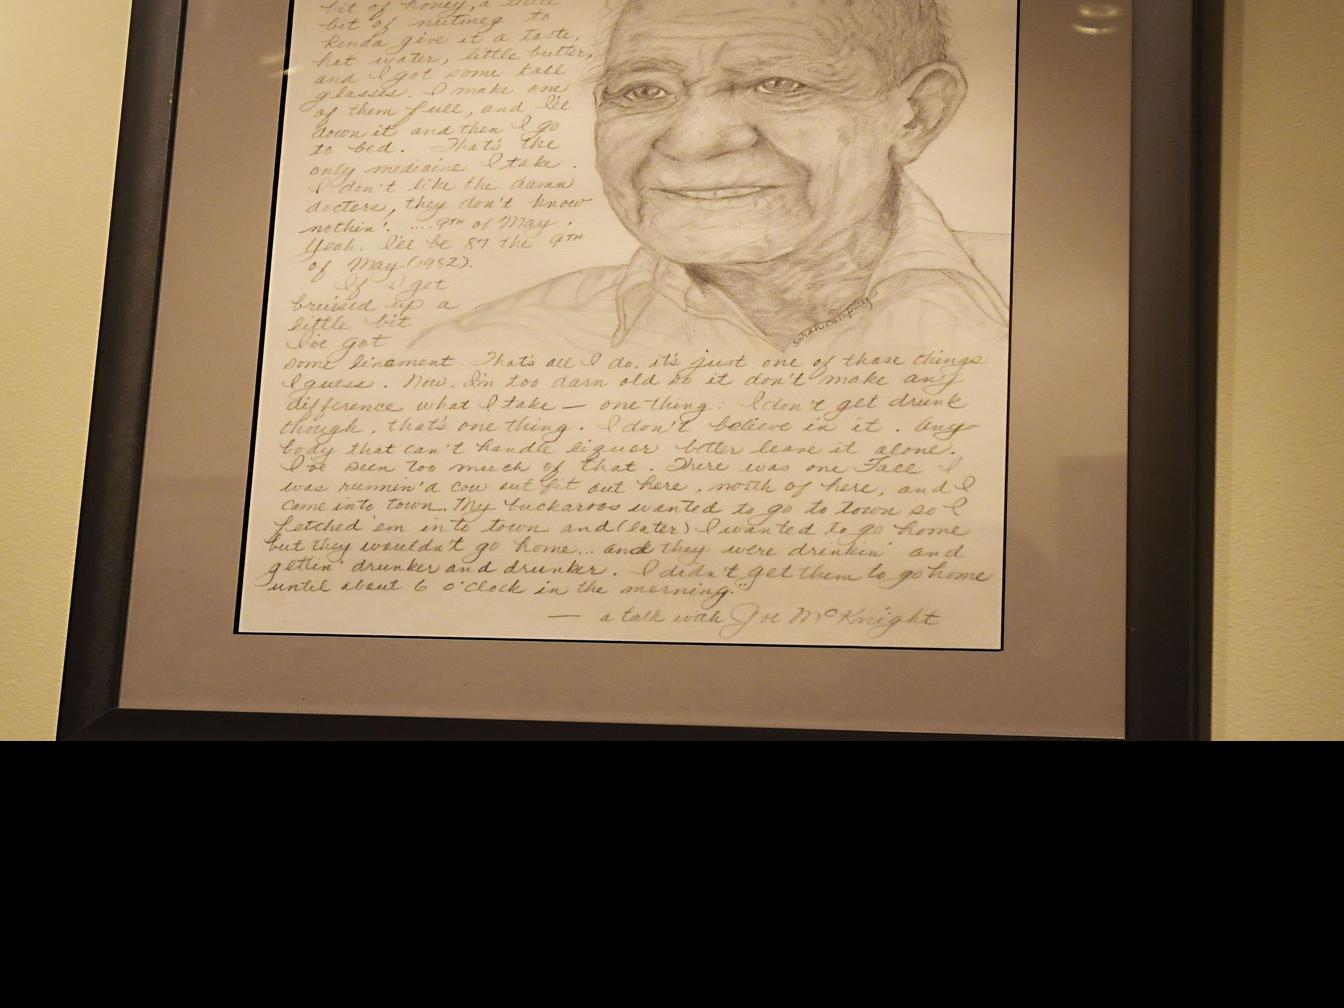 bit of honey, a little
bit of nutmeg to
kinda give it a taste,
hot water, little butter,
and I got some tall
glasses. I make one
of them full, and I'll
down it and then I go
to bed. That's the
only medicine I take.
I don't like the damn
docters, they don't know
nothin'. .... 9TH of May.
Yeah. I'll be 87 the 9TH
of May (1982).
If I get
bruised up a
little bit
I've got
some linament. That's all I do. it's just one of those things
I guess. Now. I'm too darn old so it don't make any
difference what I take — one thing: I don't get drunk
though. that's one thing. I don't believe in it. Any-
body that can't handle liquor better leave it alone.
I've seen too much of that. There was one Fall I
was runnin' a cow outfit out here. north of here, and I
came into town. My buckaroos wanted to go to town so I
fetched 'em into town and (later) I wanted to go home
but they wouldn't go home... and they were drinkin' and
gettin' drunker and drunker. I didn't get them to go home
until about 6 o'clock in the morning."
— a talk with Joe McKnight
sarah